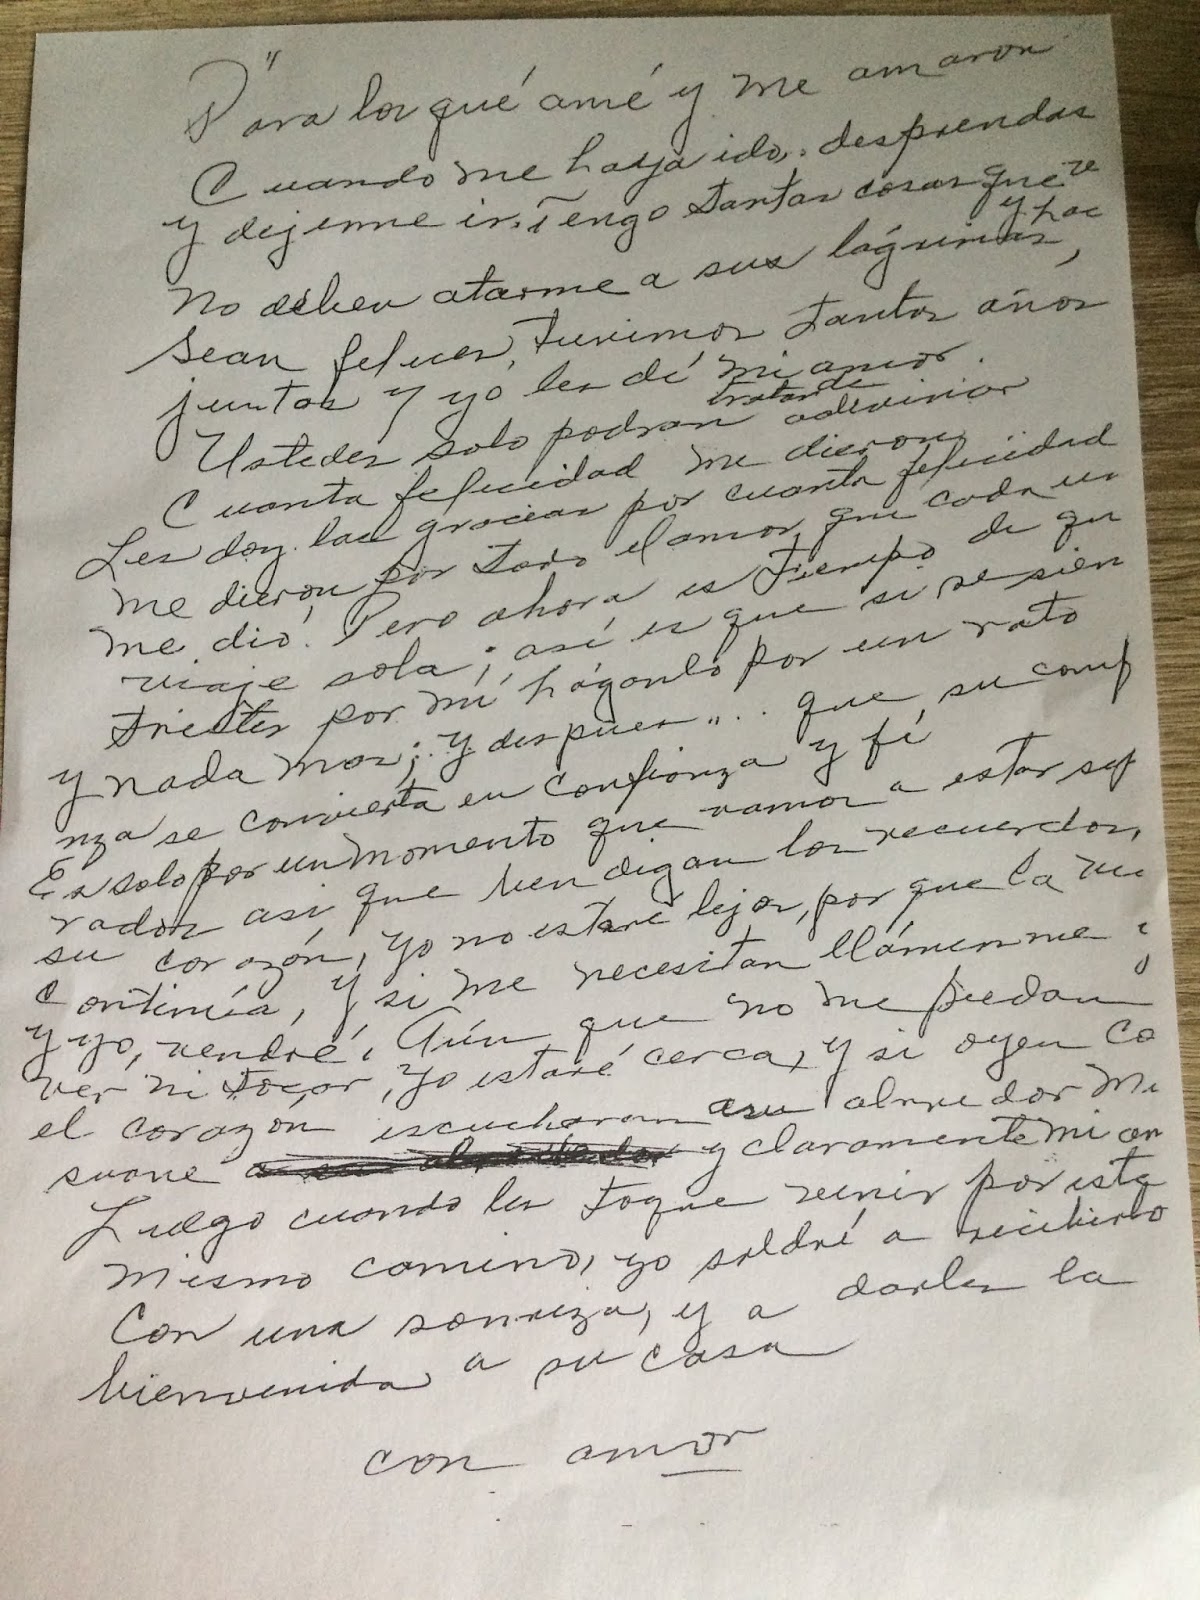 "Para los qué amé y me amaron
Cuando me haya ido, desprendas
y dejenme ir. Tengo tantas cosas que ve
y hac
No deben atarme a sus lágrimas,
Sean felices, tuvimos tantos años
juntos y yo les dí mi amor.
Ustedes solo podran tratar de adivinar
Cuanta felicidad me dieron
Les doy las gracias por cuanta felicidad
me dieron por todo el amor que cada un
me dió. Pero ahora es tiempo de qu
viaje sola; así es que si se sien
tristes por mí háganlo por un rato
y nada mas; y despues ... que su conf
nza se convierta en confianza y fé
Es solo por un momento que vamos a estar sep
rados asi que bendigan los recuerdos,
su corazón, yo no estaré lejos, por que la vi
continúa, y si me necesitan llámenme
y yo, vendré, Aún que no me puedan
ver ni tocar, yo estaré cerca, y si oyen co
el corazón escucharan a su alrredor mi
suave y claramente mi am
Luego cuando les toque venir por este
mismo camino, yo saldré a recibirlo
Con una sonriza, y a darles la
bienvenida a su casa
con amor